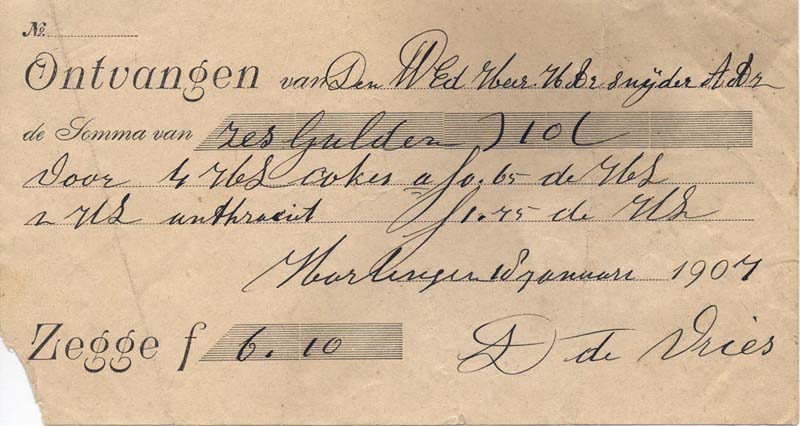 No.
Ontvangen van Den WEd Heer H snijder
de Somma van zes Gulden )10(
Voor 4 HL cokes a f 0.65 de HL
2 HL anthraciet f 1.75 de HL
Harlingen 18 januari 1907
Zegge f 6.10
D de Vries